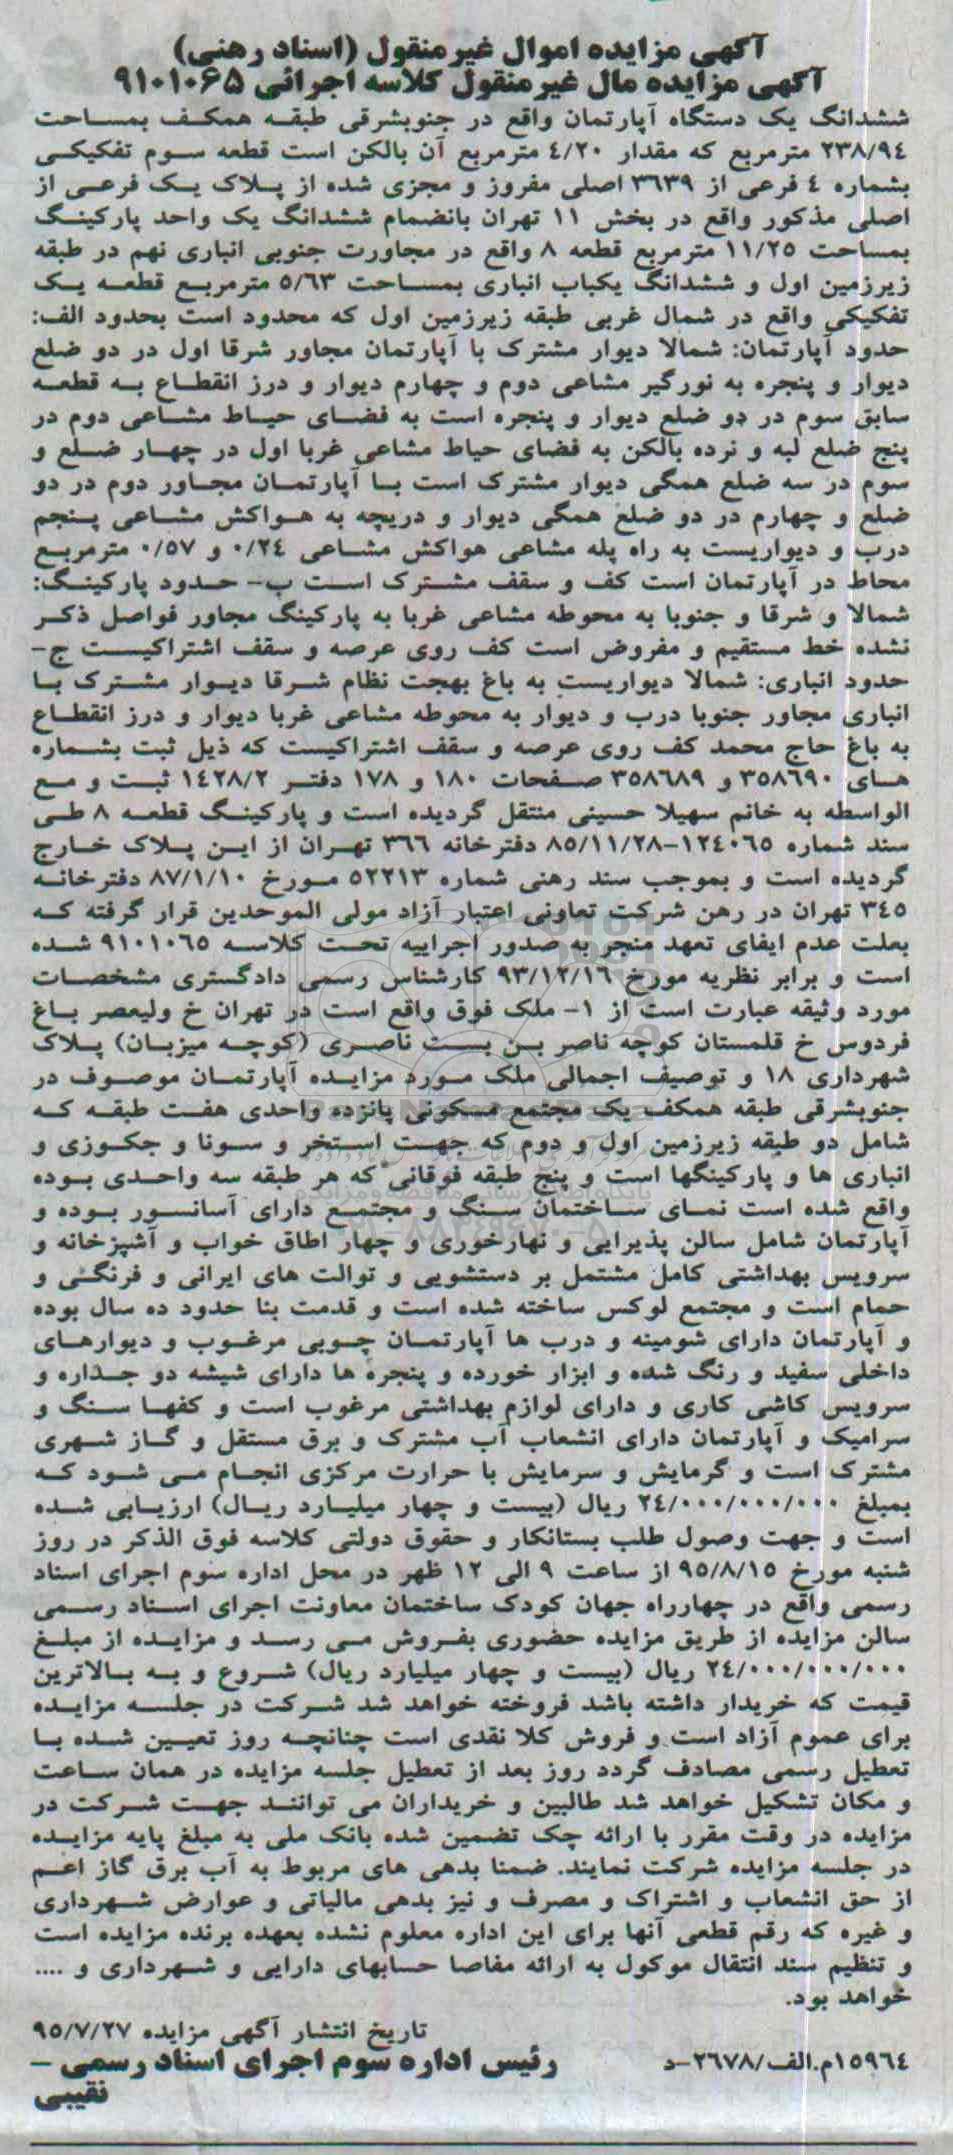 آگهی مزایده اموال غیرمنقول (اسناد رهنی)
آگهی مزایده مال غیرمنقول کلاسه اجرائی ۹۱۰۱۰۶۵
ششدانگ یک دستگاه آپارتمان واقع در جنوبشرقی طبقه همکف بمساحت
۲۳۸/۹٤ مترمربع که مقدار ٤/۲۰ مترمربع آن بالکن است قطعه سوم تفکیکی
بشماره ٤ فرعی از ۳۶۳۹ اصلی مفروز و مجزی شده از پلاک یک فرعی از
اصلی مذکور واقع در بخش ۱۱ تهران بانضمام ششدانگ یک واحد پارکینگ
بمساحت ۱۱/۲۵ مترمربع قطعه ۸ واقع در مجاورت جنوبی انباری نهم در طبقه
زیرزمین اول و ششدانگ یکباب انباری بمساحت ۵/۶۳ مترمربع قطعه یک
تفکیکی واقع در شمال غربی طبقه زیرزمین اول که محدود است بحدود الف:
حدود آپارتمان: شمالا دیوار مشترک با آپارتمان مجاور شرقا اول در دو ضلع
دیوار و پنجره به نورگیر مشاعی دوم و چهارم دیوار و درز انقطاع به قطعه
سابق سوم در دو ضلع دیوار و پنجره است به فضای حیاط مشاعی دوم در
پنج ضلع لبه و نرده بالکن به فضای حیاط مشاعی غربا اول در چهار ضلع و
سوم در سه ضلع همگی دیوار مشترک است با آپارتمان مجاور دوم در دو
ضلع و چهارم در دو ضلع همگی دیوار و دریچه به هواکش مشاعی پنجم
درب و دیواریست به راه پله مشاعی هواکش مشاعی ۰/۲٤ و ۰/۵۷ مترمربع
محاط در آپارتمان است کف و سقف مشترک است ب- حدود پارکینگ:
شمالا و شرقا و جنوبا به محوطه مشاعی غربا به پارکینگ مجاور فواصل ذکر
نشده خط مستقیم و مفروض است کف روی عرصه و سقف اشتراکیست ج-
حدود انباری: شمالا دیواریست به باغ بهجت نظام شرقا دیوار مشترک با
انباری مجاور جنوبا درب و دیوار به محوطه مشاعی غربا دیوار و درز انقطاع
به باغ حاج محمد کف روی عرصه و سقف اشتراکیست که ذیل ثبت بشماره
های ۳۵۸۶۹۰ و ۳۵۸۶۸۹ صفحات ۱۸۰ و ۱۷۸ دفتر ۱٤۲۸/۲ ثبت و مع
الواسطه به خانم سهیلا حسینی منتقل گردیده است و پارکینگ قطعه ۸ طی
سند شماره ۱۲٤۰۶۵-۸۵/۱۱/۲۸ دفترخانه ۳۶۶ تهران از این پلاک خارج
گردیده است و بموجب سند رهنی شماره ۵۲۲۱۳ مورخ ۸۷/۱/۱۰ دفترخانه
۳٤۵ تهران در رهن شرکت تعاونی اعتبار آزاد مولی الموحدین قرار گرفته که
بعلت عدم ایفای تعهد منجر به صدور اجراییه تحت کلاسه ۹۱۰۱۰۶۵ شده
است و برابر نظریه مورخ ۹۳/۱۲/۱۶ کارشناس رسمی دادگستری مشخصات
مورد وثیقه عبارت است از ۱- ملک فوق واقع است در تهران خ ولیعصر باغ
فردوس خ قلمستان کوچه ناصر بن بست ناصری (کوچه میزبان) پلاک
شهرداری ۱۸ و توصیف اجمالی ملک مورد مزایده آپارتمان موصوف در
جنوبشرقی طبقه همکف یک مجتمع مسکونی پانزده واحدی هفت طبقه که
شامل دو طبقه زیرزمین اول و دوم که جهت استخر و سونا و جکوزی و
انباری ها و پارکینگها است و پنج طبقه فوقانی که هر طبقه سه واحدی بوده
واقع شده است نمای ساختمان سنگ و مجتمع دارای آسانسور بوده و
آپارتمان شامل سالن پذیرایی و نهارخوری و چهار اطاق خواب و آشپزخانه و
سرویس بهداشتی کامل مشتمل بر دستشویی و توالت های ایرانی و فرنگی و
حمام است و مجتمع لوکس ساخته شده است و قدمت بنا حدود ده سال بوده
و آپارتمان دارای شومینه و درب ها آپارتمان چوبی مرغوب و دیوارهای
داخلی سفید و رنگ شده و ابزار خورده و پنجره ها دارای شیشه دو جداره و
سرویس کاشی کاری و دارای لوازم بهداشتی مرغوب است و کفها سنگ و
سرامیک و آپارتمان دارای انشعاب آب مشترک و برق مستقل و گاز شهری
مشترک است و گرمایش و سرمایش با حرارت مرکزی انجام می شود که
بمبلغ ۲٤/۰۰۰/۰۰۰/۰۰۰ ریال (بیست و چهار میلیارد ریال) ارزیابی شده
است و جهت وصول طلب بستانکار و حقوق دولتی کلاسه فوق الذکر در روز
شنبه مورخ ۹۵/۸/۱۵ از ساعت ۹ الی ۱۲ ظهر در محل اداره سوم اجرای اسناد
رسمی واقع در چهارراه جهان کودک ساختمان معاونت اجرای اسناد رسمی
سالن مزایده از طریق مزایده حضوری بفروش می رسد و مزایده از مبلغ
۲٤/۰۰۰/۰۰۰/۰۰۰ ریال (بیست و چهار میلیارد ریال) شروع و به بالاترین
قیمت که خریدار داشته باشد فروخته خواهد شد شرکت در جلسه مزایده
برای عموم آزاد است و فروش کلا نقدی است چنانچه روز تعیین شده با
تعطیل رسمی مصادف گردد روز بعد از تعطیل جلسه مزایده در همان ساعت
و مکان تشکیل خواهد شد طالبین و خریداران می توانند جهت شرکت در
مزایده در وقت مقرر با ارائه چک تضمین شده بانک ملی به مبلغ پایه مزایده
در جلسه مزایده شرکت نمایند. ضمنا بدهی های مربوط به آب برق گاز اعم
از حق انشعاب و اشتراک و مصرف و نیز بدهی مالیاتی و عوارض شهرداری
و غیره که رقم قطعی آنها برای این اداره معلوم نشده بعهده برنده مزایده است
و تنظیم سند انتقال موکول به ارائه مفاصا حسابهای دارایی و شهرداری و ....
خواهد بود.
تاریخ انتشار آگهی مزایده ۹۵/۷/۲۷
۱۵۹۶٤م.الف/۲۶۷۸-د رئیس اداره سوم اجرای اسناد رسمی -
نقیبی